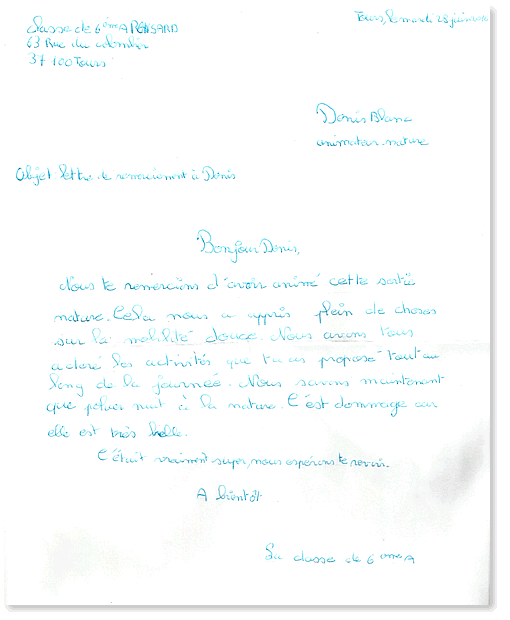 Classe de 6ème A RONSARD
63 Rue du colombier
37100 Tours
Tours, le mardi 28 juin
Denis Blanc
animateur nature
Objet lettre de remerciement à Denis
Bonjour Denis,
Nous te remercions d'avoir animé cette sortie
nature. Cela nous a appris plein de choses
sur la mobilité douce. Nous avons tous
adoré les activités que tu as proposé tout au
long de la journée. Nous savons maintenant
que polluer nuit à la nature. C'est dommage car
elle est très belle.
C'était vraiment super, nous espérons te revoir.
A bientôt
La classe de 6ème A